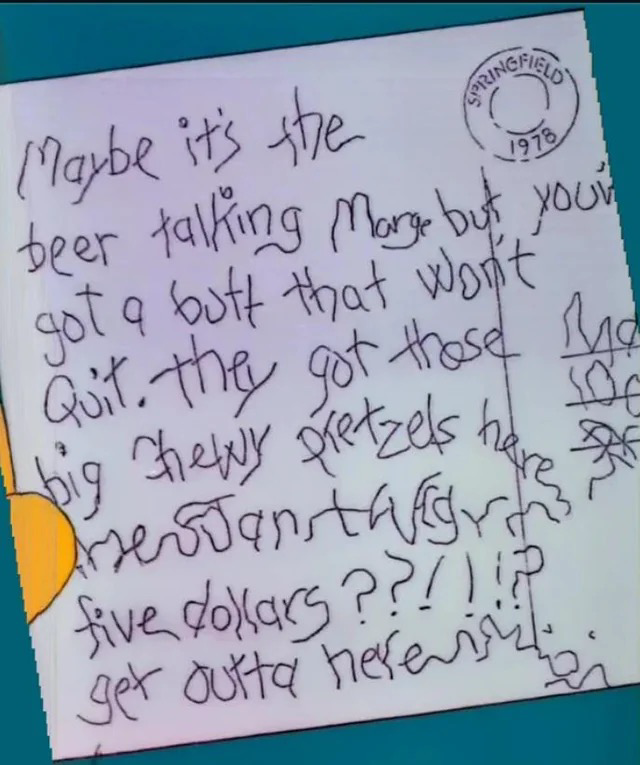 SPRINGFIELD
1978
Maybe it's the
beer talking Marge but you'v
got a butt that won't
Quit. they got those
big chewy pretzels here
five dollars ??!!!?
get outta here